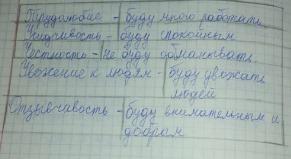 Трудолюбие - буду много работать
Усидчивость - буду спокойным
Честность - не буду обманывать
Уважение к людям - буду уважать
людей
Отзывчивость - буду внимательным и
добрым